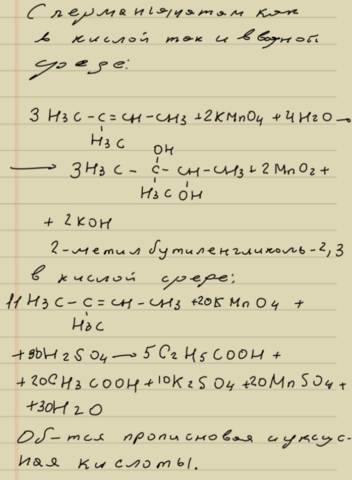 С перманганатом как
в кислой так и в водной
среде:
3 H3C - C = CH - CH3 + 2KMnO4 + 4H2O →
H3C
OH
→ 3H3C - C - CH - CH3 + 2MnO2 +
H3C OH
+ 2KOH
2-метилбутиленгликоль-2,3
в кислой среде:
11 H3C - C = CH - CH3 + 20KMnO4 +
H3C
+30H2SO4 → 5C2H5COOH +
+ 20CH3COOH + 10K2SO4 + 20MnSO4 +
+30H2O
Об-тся прописновая и уксус-
ная кислоты.